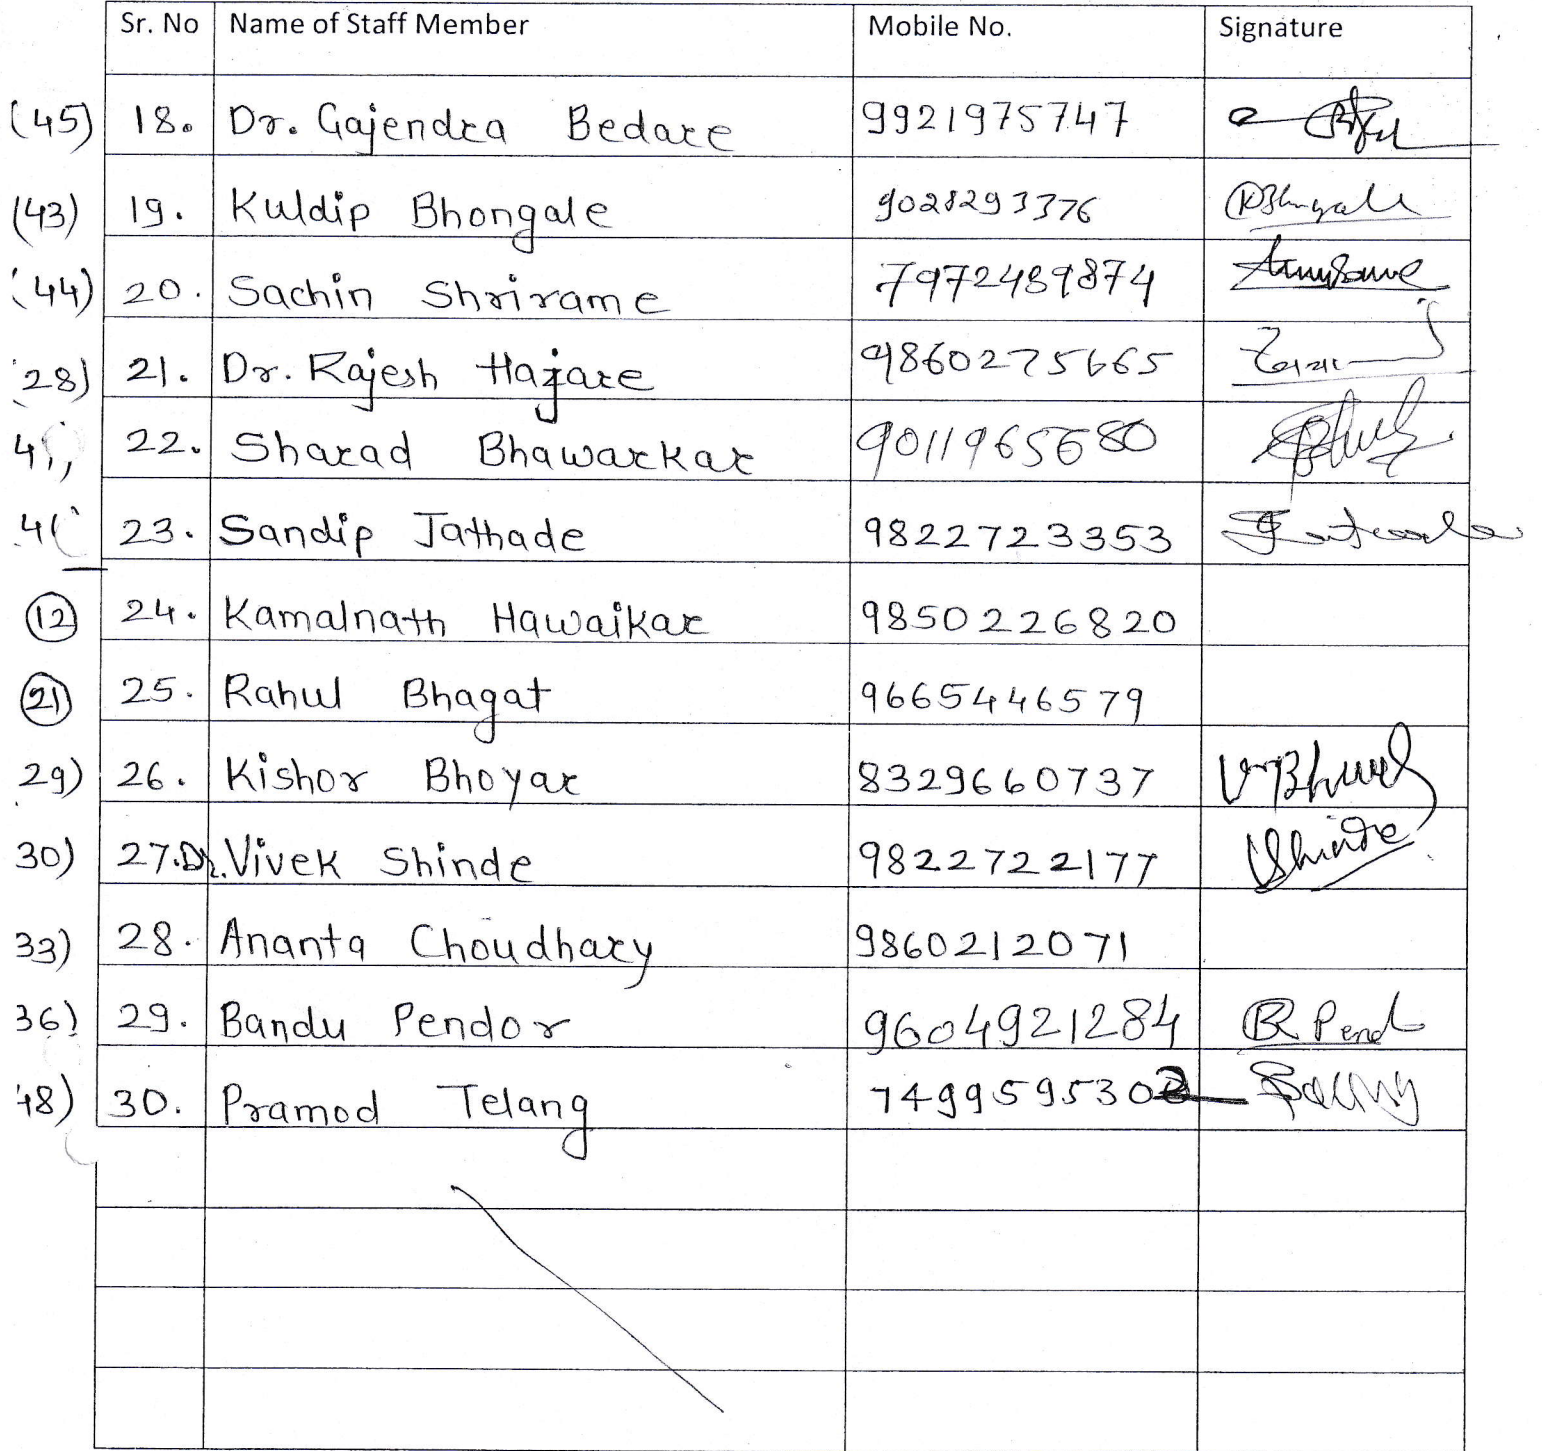 Sr. No Name of Staff Member Mobile No. Signature
(45) 18. Dr. Gajendra Bedare 9921975747
(43) 19. Kuldip Bhongale 9028293376
(44) 20. Sachin Shrirame 7972489874
28) 21. Dr. Rajesh Hajare 9860275665
22. Sharad Bhawarkar 9011965680
23. Sandip Jathade 9822723353
12 24. Kamalnath Hawaikar 9850226820
21 25. Rahul Bhagat 9665446579
29) 26. Kishor Bhoyar 8329660737
30) 27. Dr. Vivek Shinde 9822722177 Shinde
33) 28. Ananta Choudhary 9860212071
36) 29. Bandu Pendor 9604921284
48) 30. Pramod Telang